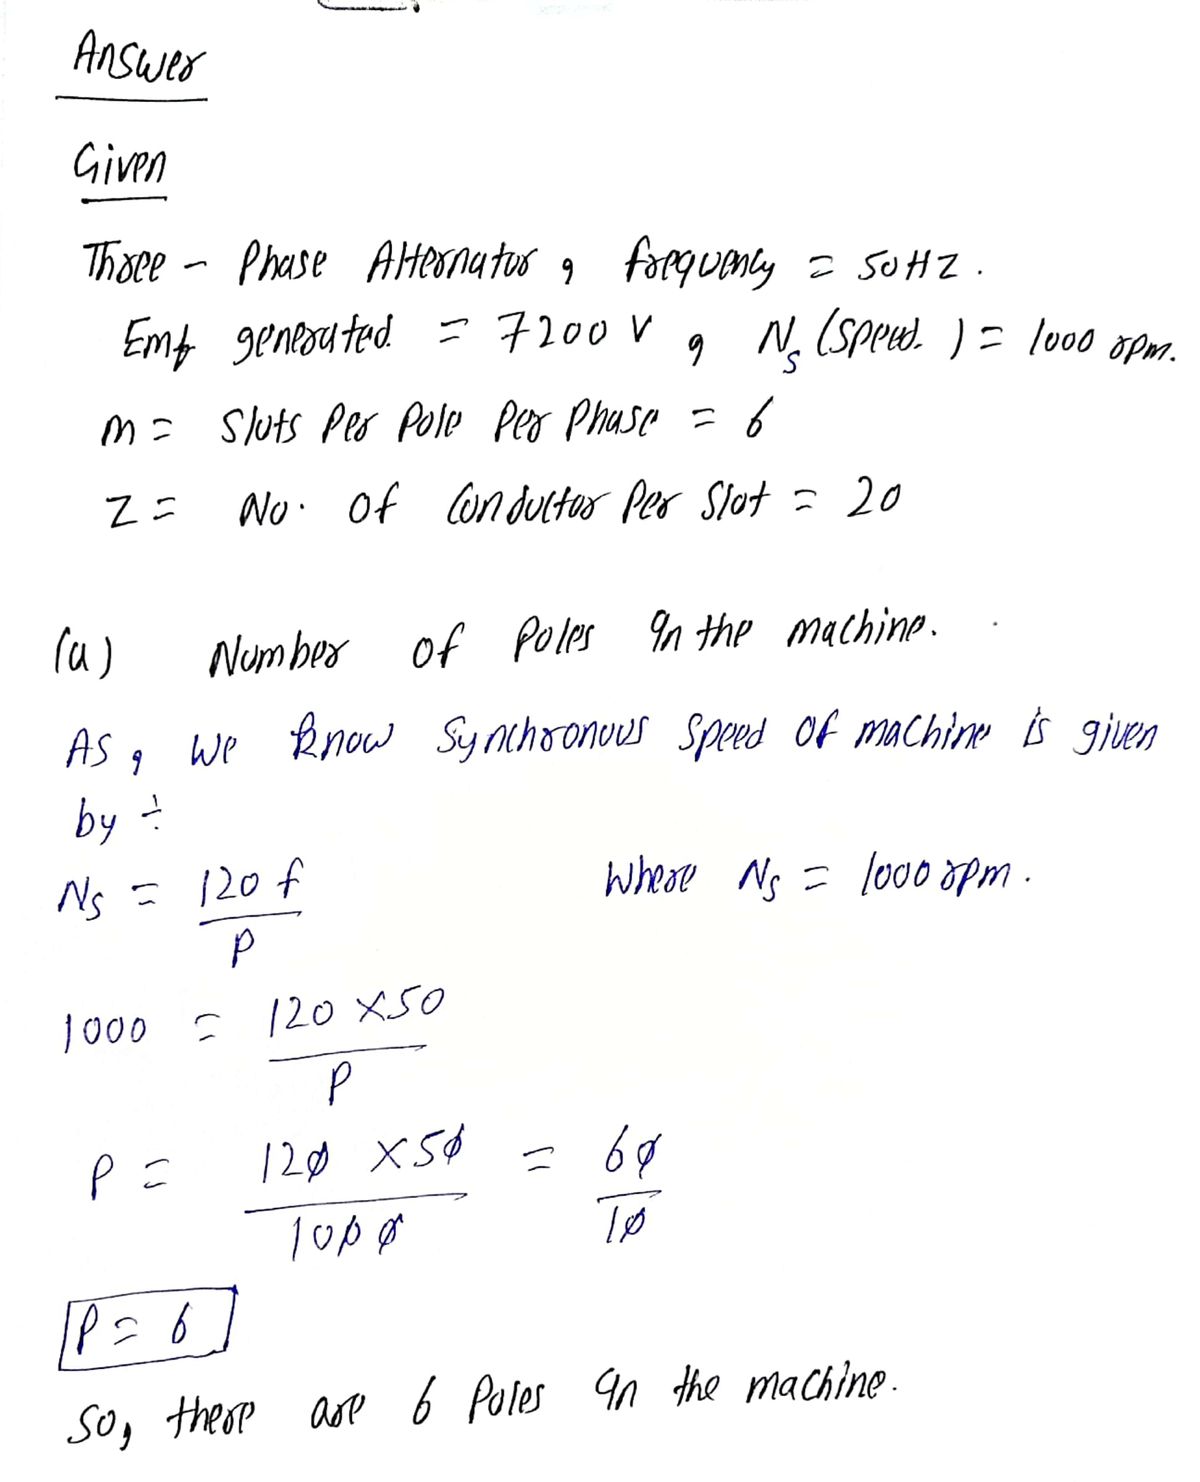 Answer
Given
Three - Phase Alternator, frequency = 50HZ.
Emf generated = 7200 V, Ns (speed.) = 1000 rpm.
m = Sluts Per Pole Per Phase = 6
Z = No. of Conductor Per Slot = 20
(a) Number of Poles in the machine.
As, we know Synchronous Speed of machine is given
by ÷
Ns = 120 f / P Where Ns = 1000 rpm.
1000 = 120 × 50 / P
P = 120 × 50 / 1000 = 60 / 10
P = 6
So, there are 6 Poles in the machine.